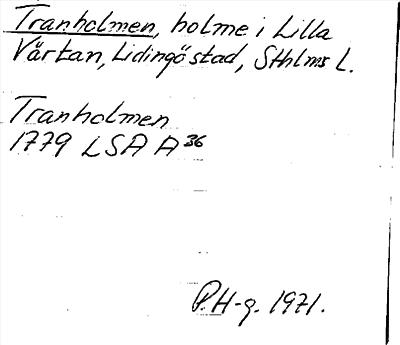 Tranholmen, holme i Lilla
Värtan, Lidingö stad, Sthlms L.
Tranholmen
1779 LSA A 36
P.H-g. 1971.